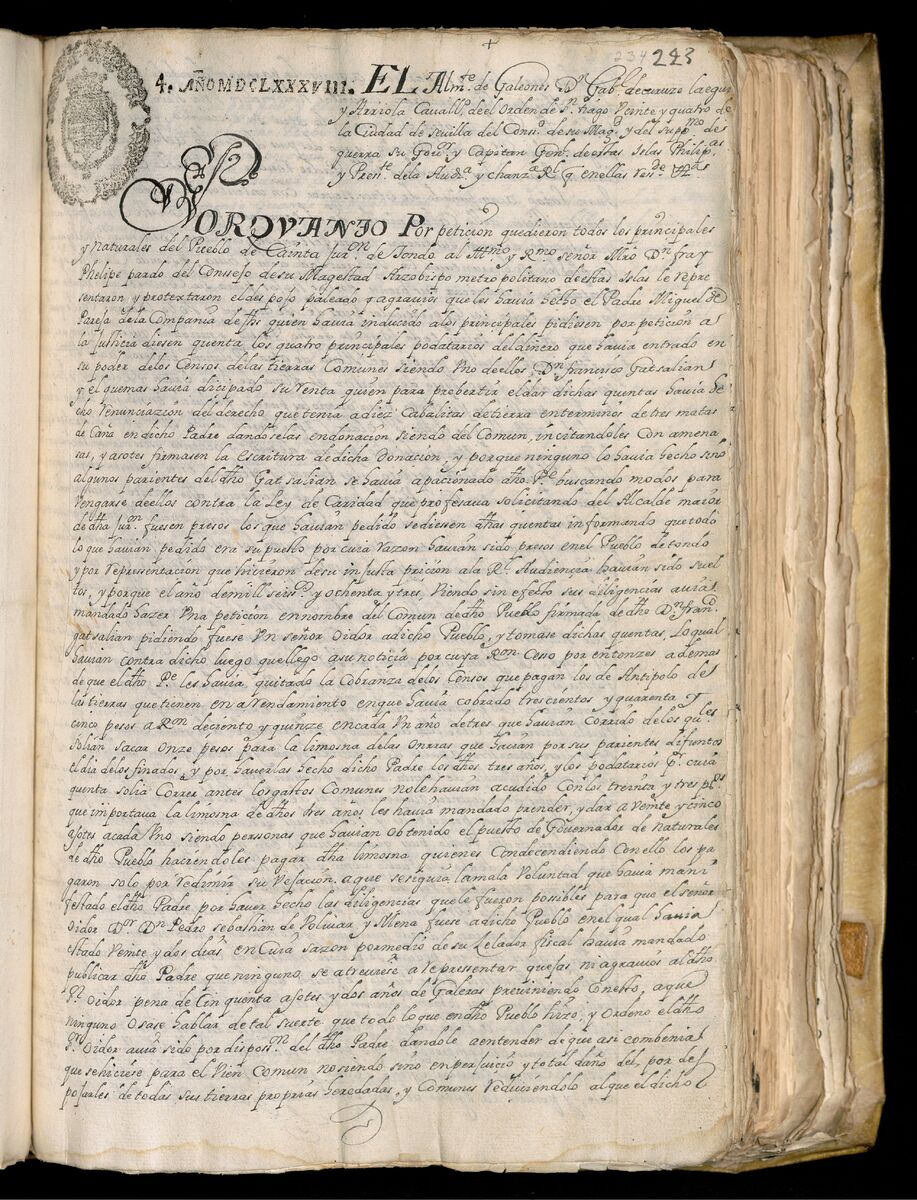 234 223
4. AÑO MDCLXXXVIII. EL Almte. de Galeones Dn. Gabl. de curuze laegui
y Arriola Cavallo. de el orden de S.tiago Veinte y quatro de
la Ciudad de sevilla del Conso. de su Magd. y del suppmo de
guerra su Gouor. y Capitan Genl. de estas Islas Philipas
y Presite dela Auda y chanza Rl q enellas reside Etas
PORQVANTO Por petición quedieron todos los principales
y Naturales del Pueblo de Cainta jurон de Tondo al Illmo y Rmo señor Mro Dn fray
Phelipe pardo del Consejo de su Magestad Arzobispo metropolitano de estas Islas le repre
sentaron, y protextaron el despojo paleado y agravios que les havia hecho el Padre Miguel de
Pareja de la Compania de Jhs quien havia inducido a los principales pidiesen por petición a
la Justicia diesen quenta los quatro principales podatarios del dinero que havia entrado en
su poder delos Censos delas tierras Comunes siendo Vno de ellos, Dn francisco Gatsalian
y el que mas havia dicipado su renta quien para probertir el dar dichas quentas havia he
cho renunciazion del derecho que tenia a diez Cabalitas de tierra en terminos de tres matas
de Caña en dicho Padre dandoselas en donacion siendo del Comun, incitandoles Con amena
sas, y asotes firmasen la escritura de dicha Donacion, y porque ninguno lo havia hecho sino
algunos parientes del dho Gatsalian se havia apacionado dho Pe buscando modos para
Vengarse de ellos contra la Ley de Caridad que profesava solicitando del Alcalde maior
de dha juron fuesen presos los que havian pedido se diesen dhas quentas informando que todo
lo que havian pedido era supuesto por cuia razon havian sido presos en el Pueblo de tondo
y por representación que hicieron de su injusta pricion ala Rl Audiencia havian sido suel
tos, y porque el ano de mill seiss. y ochenta y tres Viendo sin efecto sus diligencias avia
mandado hazer Vna peticion en nombre del Comun de dho Pueblo firmada de dho Dn franco
gatsalian pidiendo fuese Vn señor oidor a dicho Pueblo, y tomase dichas quentas, lo qual
havian contra dicho luego que llego a su noticia por cuya Ron Cesso por entonzes ademas
de que el dho Pe les havia quitado la Cobranza delos Censos que pagan los de Antipolo de
las tierras que tienen en arrendamiento en que havia cobrado trescientos y quarenta y
cinco pesos a Ron de ciento y quinze en cada Vn año de tres que havian Corrido de los quales
solian sacar onze pesos para la limosna delas onrras que hacian por sus parientes difuntos
el dia delos finados, y por haverlas hecho dicho Padre los dhos tres años, y los podatarios pr. cuia
quenta solia Correr antes los gastos Comunes nole havian acudido Con los treinta y tres ps
que importava la limosna de dhos tres años, les havia mandado prender, y dar a Veinte y cinco
asotes a cada Vno siendo personas que havian obtenido el puesto de Governador de Naturales
de dho Pueblo haciendoles pagar dha limosna quienes Condecendiendo Con ello los pa
garon solo por redimir su Vejacion, a que se seguia la mala Voluntad que havia mani
festado el dho Padre por haver hecho las diligencias que le fueron possibles para que el señor
Oidor Dor Dn Pedro sebastian de Bolivar y Mena fuese a dicho Pueblo en el qual havia
estado Veinte y dos dias en Cuia sazon por medio de su Zelador fiscal havia mandado
publicar dho Padre que ninguno, se atreviese a representar quejas ni agravios al dho
Sr. Oidor pena de Cinquenta asotes, y dos años de Galeras previniendo Con esto, a que
ninguno osase hablar de tal suerte que todo lo que en dho Pueblo hizo, y Ordeno el dho
Sor Oidor avia sido por disposon del dho Padre dandole aentender de que asi combenia
que se hiciese para el Vien Comun no siendo sino en perjuicio y total daño del, por des
posarles de todas sus tierras proprias heredadas, y Comunes reduciendolo al que el dicho